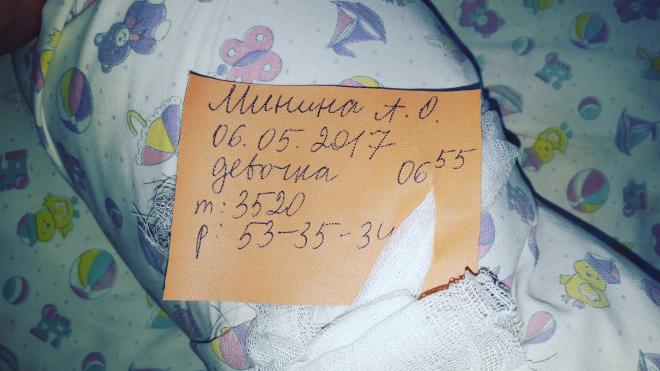 Минина А.О.
06.05.2017
девочка 06 55
т: 3520
р: 53-35-34